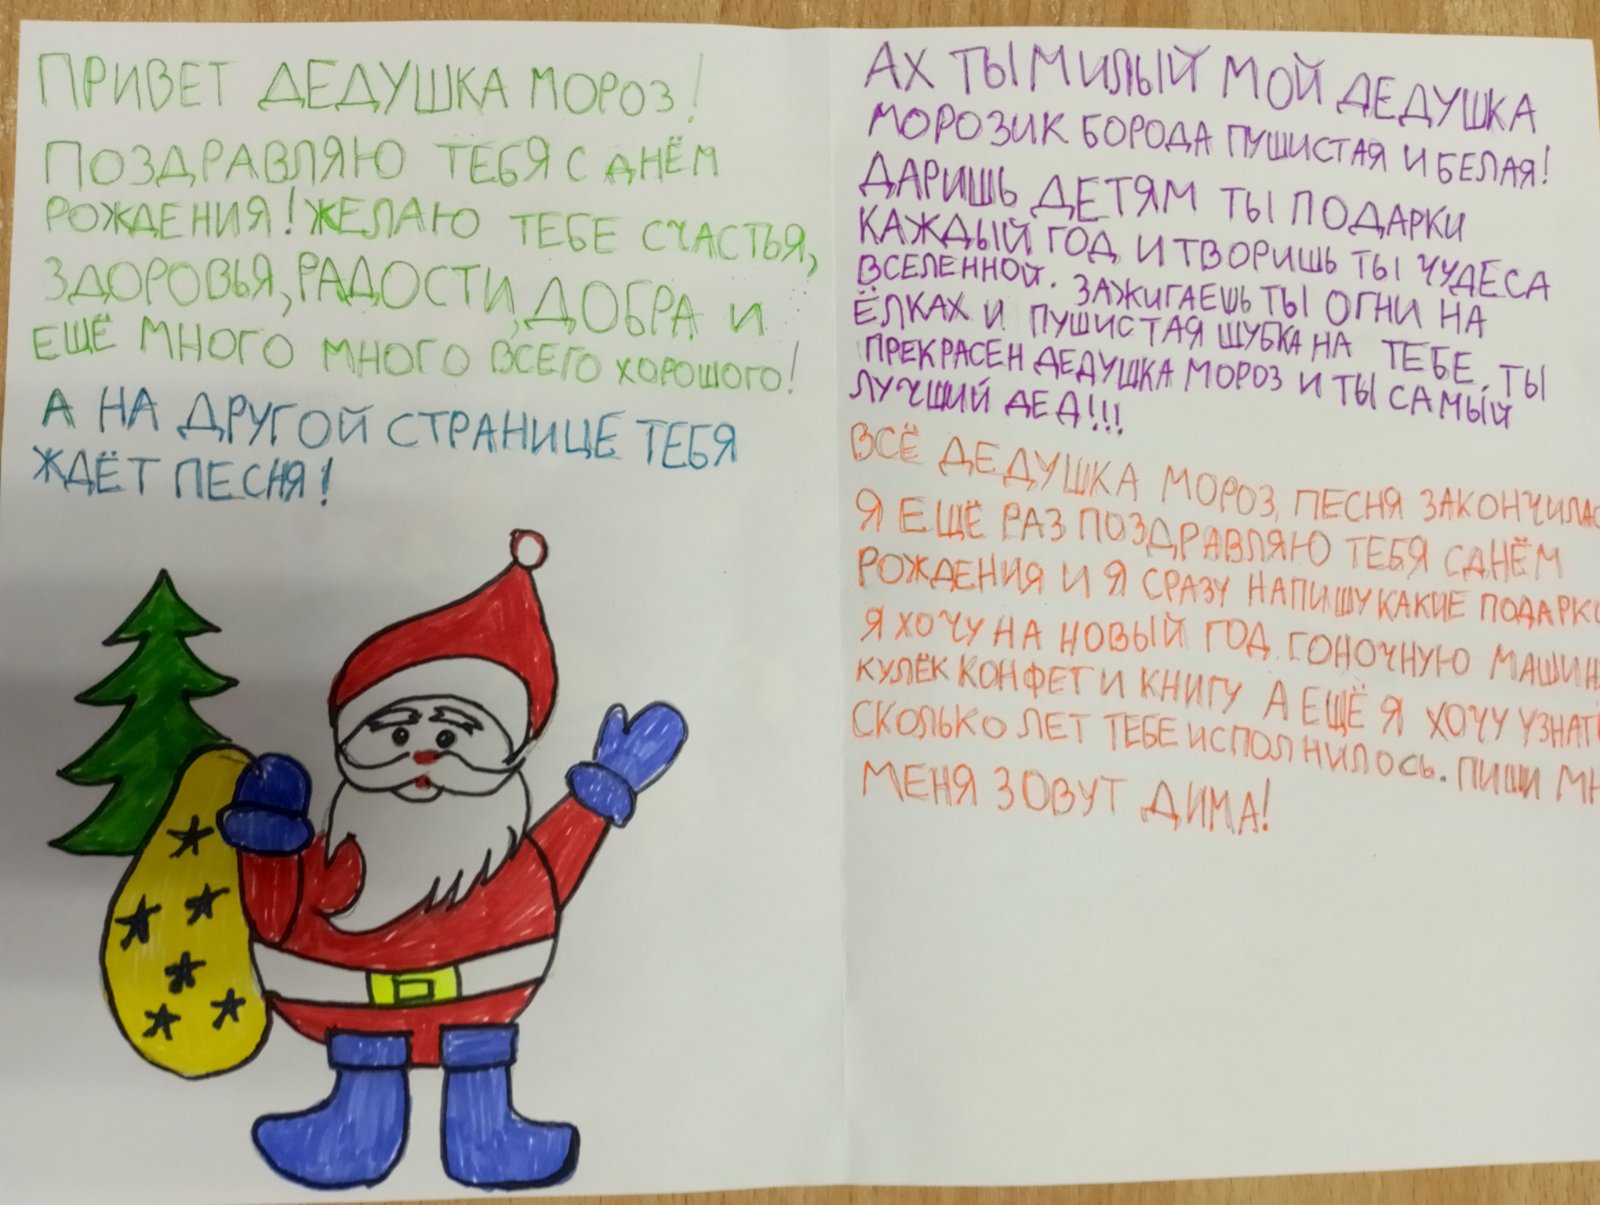 ПРИВЕТ ДЕДУШКА МОРОЗ!
ПОЗДРАВЛЯЮ ТЕБЯ С ДНЁМ
РОЖДЕНИЯ! ЖЕЛАЮ ТЕБЕ СЧАСТЬЯ,
ЗДОРОВЬЯ, РАДОСТИ, ДОБРА И
ЕЩЁ МНОГО МНОГО ВСЕГО ХОРОШОГО!
А НА ДРУГОЙ СТРАНИЦЕ ТЕБЯ
ЖДЁТ ПЕСНЯ!
АХ ТЫ МИЛЫЙ МОЙ ДЕДУШКА
МОРОЗИК БОРОДА ПУШИСТАЯ И БЕЛАЯ!
ДАРИШЬ ДЕТЯМ ТЫ ПОДАРКИ
КАЖДЫЙ ГОД, И ТВОРИШЬ ТЫ ЧУДЕСА
ВСЕЛЕННОЙ. ЗАЖИГАЕШЬ ТЫ ОГНИ НА
ЁЛКАХ И ПУШИСТАЯ ШУБКА НА ТЕБЕ. ТЫ
ПРЕКРАСЕН ДЕДУШКА МОРОЗ И ТЫ САМЫЙ
ЛУЧШИЙ ДЕД!!!
ВСЁ ДЕДУШКА МОРОЗ, ПЕСНЯ ЗАКОНЧИЛАС
Я ЕЩЁ РАЗ ПОЗДРАВЛЯЮ ТЕБЯ С ДНЁМ
РОЖДЕНИЯ И Я СРАЗУ НАПИШУ КАКИЕ ПОДАРК
Я ХОЧУ НА НОВЫЙ ГОД. ГОНОЧНУЮ МАШИН
КУЛЁК КОНФЕТ И КНИГУ А ЕЩЁ Я ХОЧУ УЗНАТ
СКОЛЬКО ЛЕТ ТЕБЕ ИСПОЛНИЛОСЬ. ПИШИ МН
МЕНЯ ЗОВУТ ДИМА!